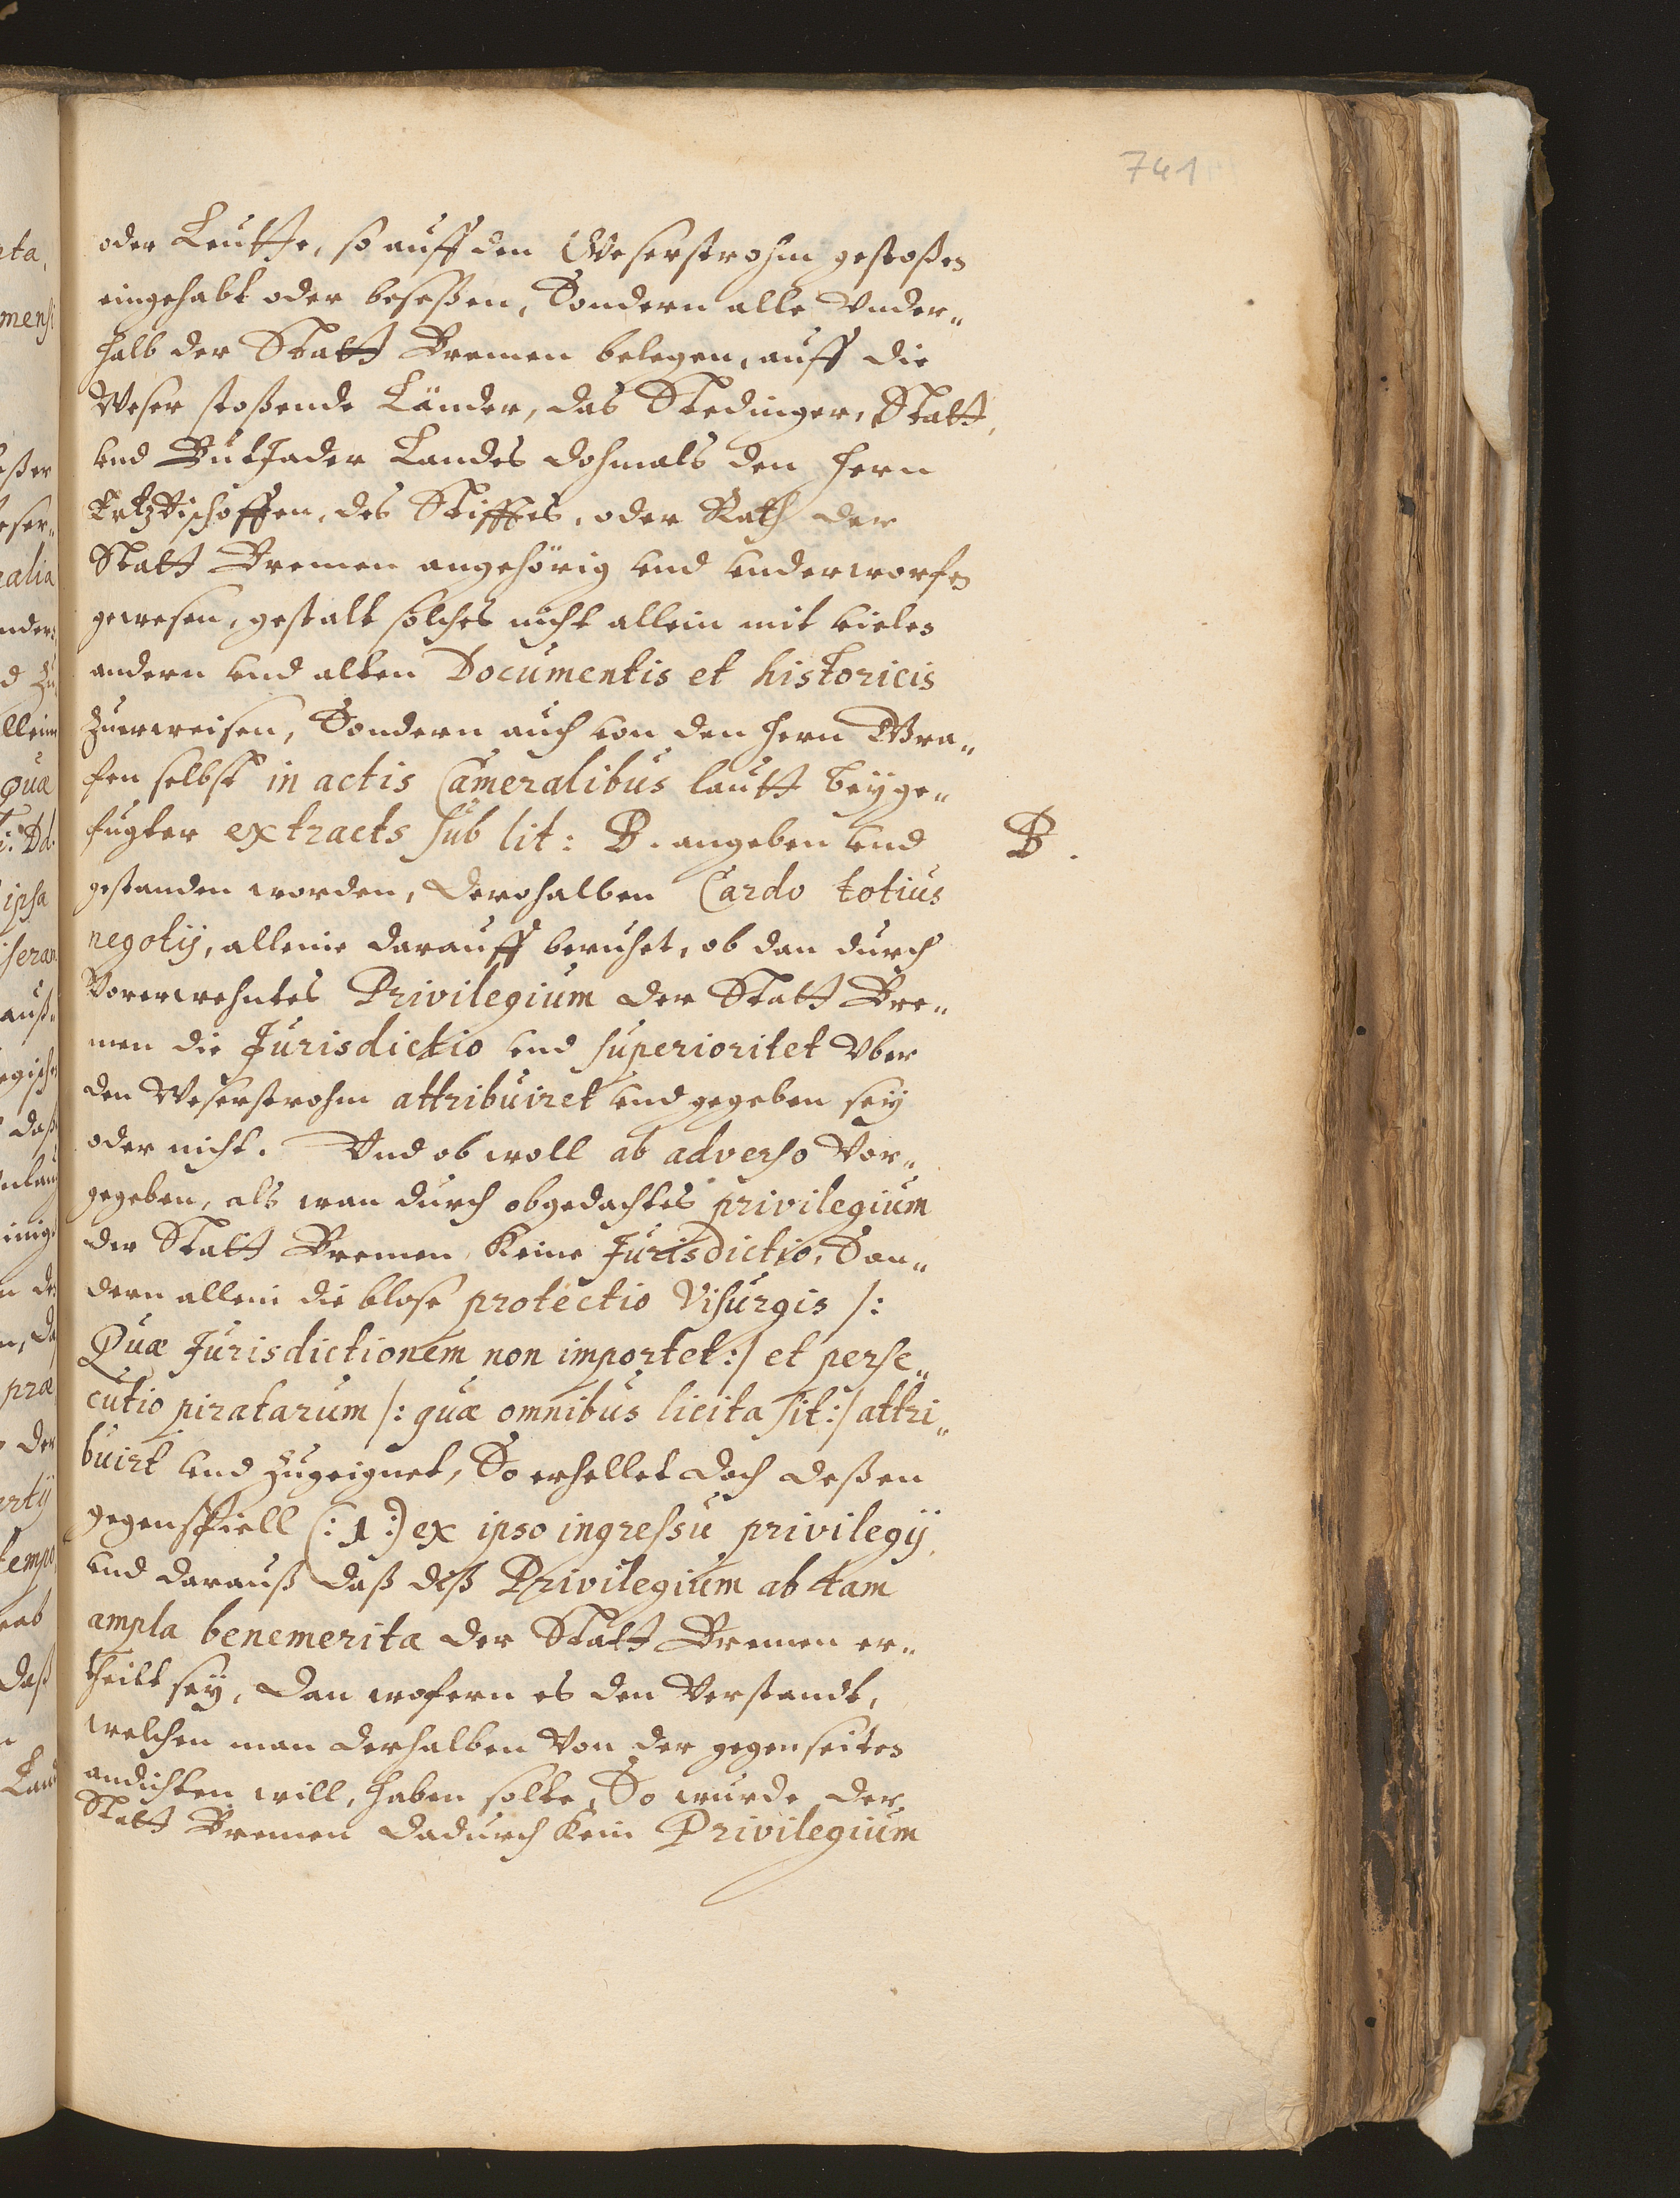 741
oder Leutthe, so auff den Weserstrohm gestoßen
eingehabt oder beseßen, Sondern alle Vnder„
halb der Statt Bremen belegen, auff die
Weser stoßende Länder, das Stedinger, Statt,
vnd Butjader Landes dohmals den Hern
Ertzbischoffen, des Stifftes, oder Rath der
Statt Bremen angehörig vnd vnderworfen
gewesen, gestalt solches nicht allein mit vielen
andern vnd alten Documentis et historicis
zuerweisen, Sondern auch von den Hern Gra„
fen selbst in actis Cameralibus lautt beyge„
fugter extracts sub lit: B. angeben vnd
B.
gestanden worden, Derohalben Cardo totius
negotij, alleine darauff beruhet, ob dan durch
Vorerwehntes Privilegium der Statt Bre„
men die Jurisdictio vnd superioritet Vber
den Weserstrohm attribuiret vnd gegeben sey
oder nicht. Vnd ob woll ab adverso Vor„
gegeben, als wan durch obgedachtes privilegium
der Statt Bremen keine Jurisdictio, Son„
dern allein die blose protectio Visurgis /:
Quæ Jurisdictionem non importet:/ et perse„
cutio piratarum /: quæ omnibus licita sit:/ attri„
buirt vnd zugeignet, So erhellet doch deßen
gegenspiell (: 1 :) ex ipso ingressu privilegij,
vnd darauß daß diß Privilegium ab tam
ampla benemerita der Statt Bremen er„
theilt sey, Dan wofern es den Verstandt,
welchen man derhalben Von der gegenseiten
andichten will, haben solte, So wurde der
Statt Bremen dadurch kein Privilegium